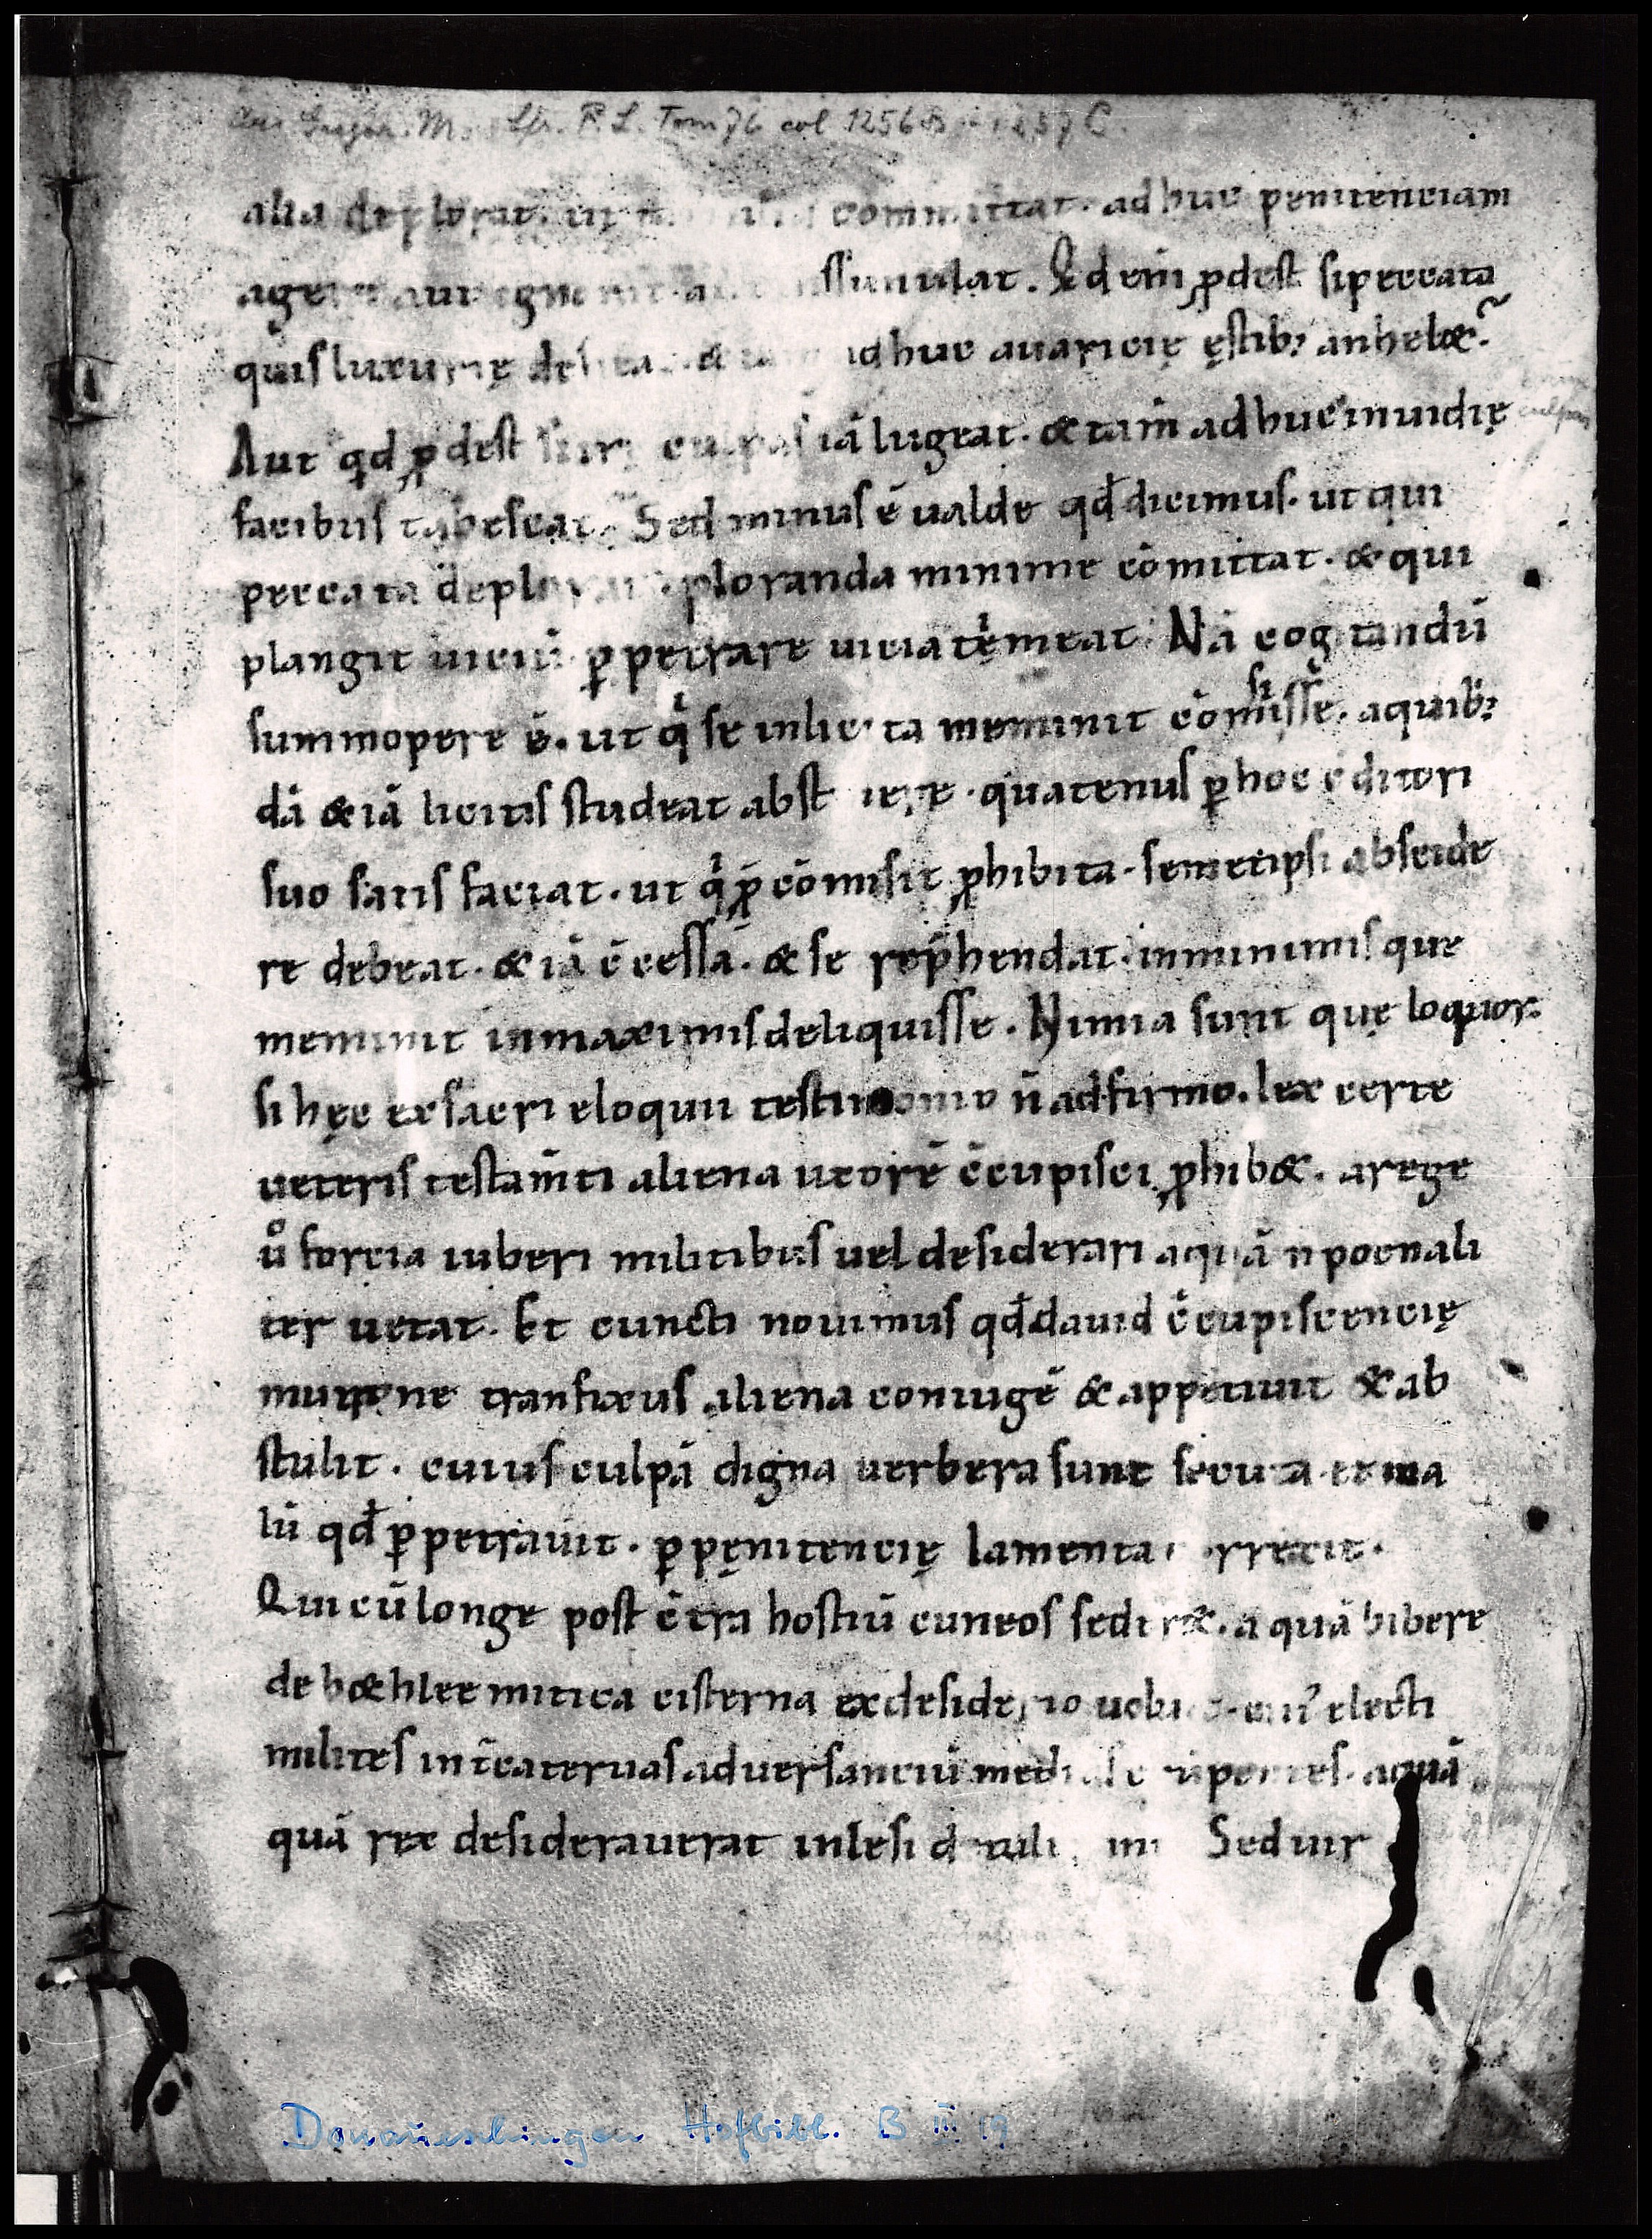 Aus Gregor. M. Lfr. P. L. Tom 76 col 1256 B - 1257 C.
alia deplorat. ut committat. adhuc penitenciam
agere aut ssimulat. Qd eni̅ ꝓdest si peccata
quis luxurię deserat & adhuc auaricię ęstib; anhelæ?
Aut qd ꝓdest culpas iā lugeat. & tam̅ adhuc inuidię
facibus tabescat. Sed minus ē ualde qd̄ dicimus. ut qui
peccata deplorat ploranda minime cōmittat. & qui
plangit uiciū ꝑpetrare uicia tęmeat. Nā cogitandū
summopere ē. ut qͥ se inlicita meminit cōmisisse. a quib;
dā &iā licitis studeat abstinere. quatenus ꝑ hoc c̄ditori
suo satis faciat. ut qͥ cōmisit ꝓhibita. semetipsi abscide
re debeat. &iā c̄cessa. & se rep̄hendat. in minimis que
meminit in maximis deliquisse. Nimia sunt quę loquor.
si hęc ex sacri eloquii testimonio n̄ adfirmo. lex certe
ueteris testam̅ti aliena uxorē c̄cupisci ꝓhibæ. a rege
uͦ forcia iuberi militibus uel desiderari aquā n̄ poenali
ter uetat. Et cuncti nouimus qd̄ dauid c̄cupiscencię
mucrone tranfixus aliena coniugē & appetiuit & ab
stulit. cuius culpā digna uerbera sunt secuta. et ma
lū qd̄ ꝑpetrauit. ꝑ pęnitencię lamenta correxit.
Qui cū longe post c̄tra hostiū cuneos sederæ. aquā bibere
de bæhleemitica cisterna ex desiderio uoluit. cui? electi
milites int̄ cateruas aduersanciū medias erūpentes. aquā
quā rex desiderauerat inlesi detuli Sed uir
Donaueschingen Hofbibl. B III 19